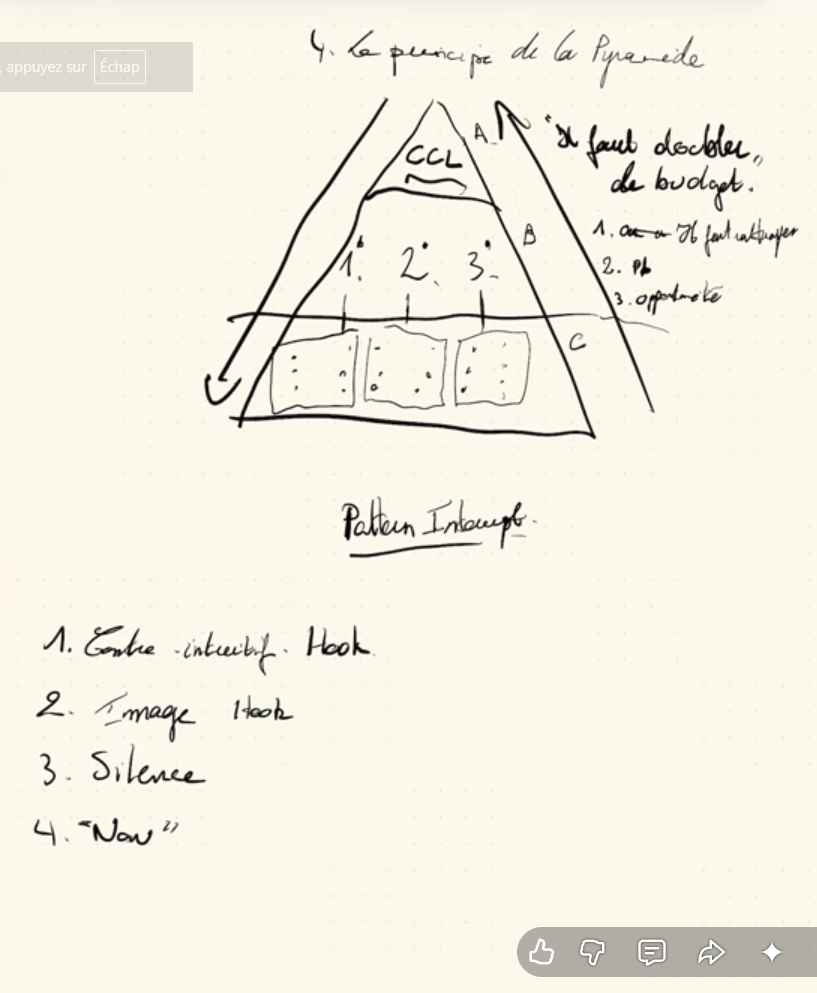 , appuyez sur Échap
4. Le principe de la Pyramide
A
CCL
"Il faut doubler"
de budget.
B
1. Il faut rattraper
1. 2. 3.
2. Pb
3. opportunité
C
Pattern Interrupt.
1. Contre-intuitif. Hook
2. Image Hook
3. Silence
4. "Non"